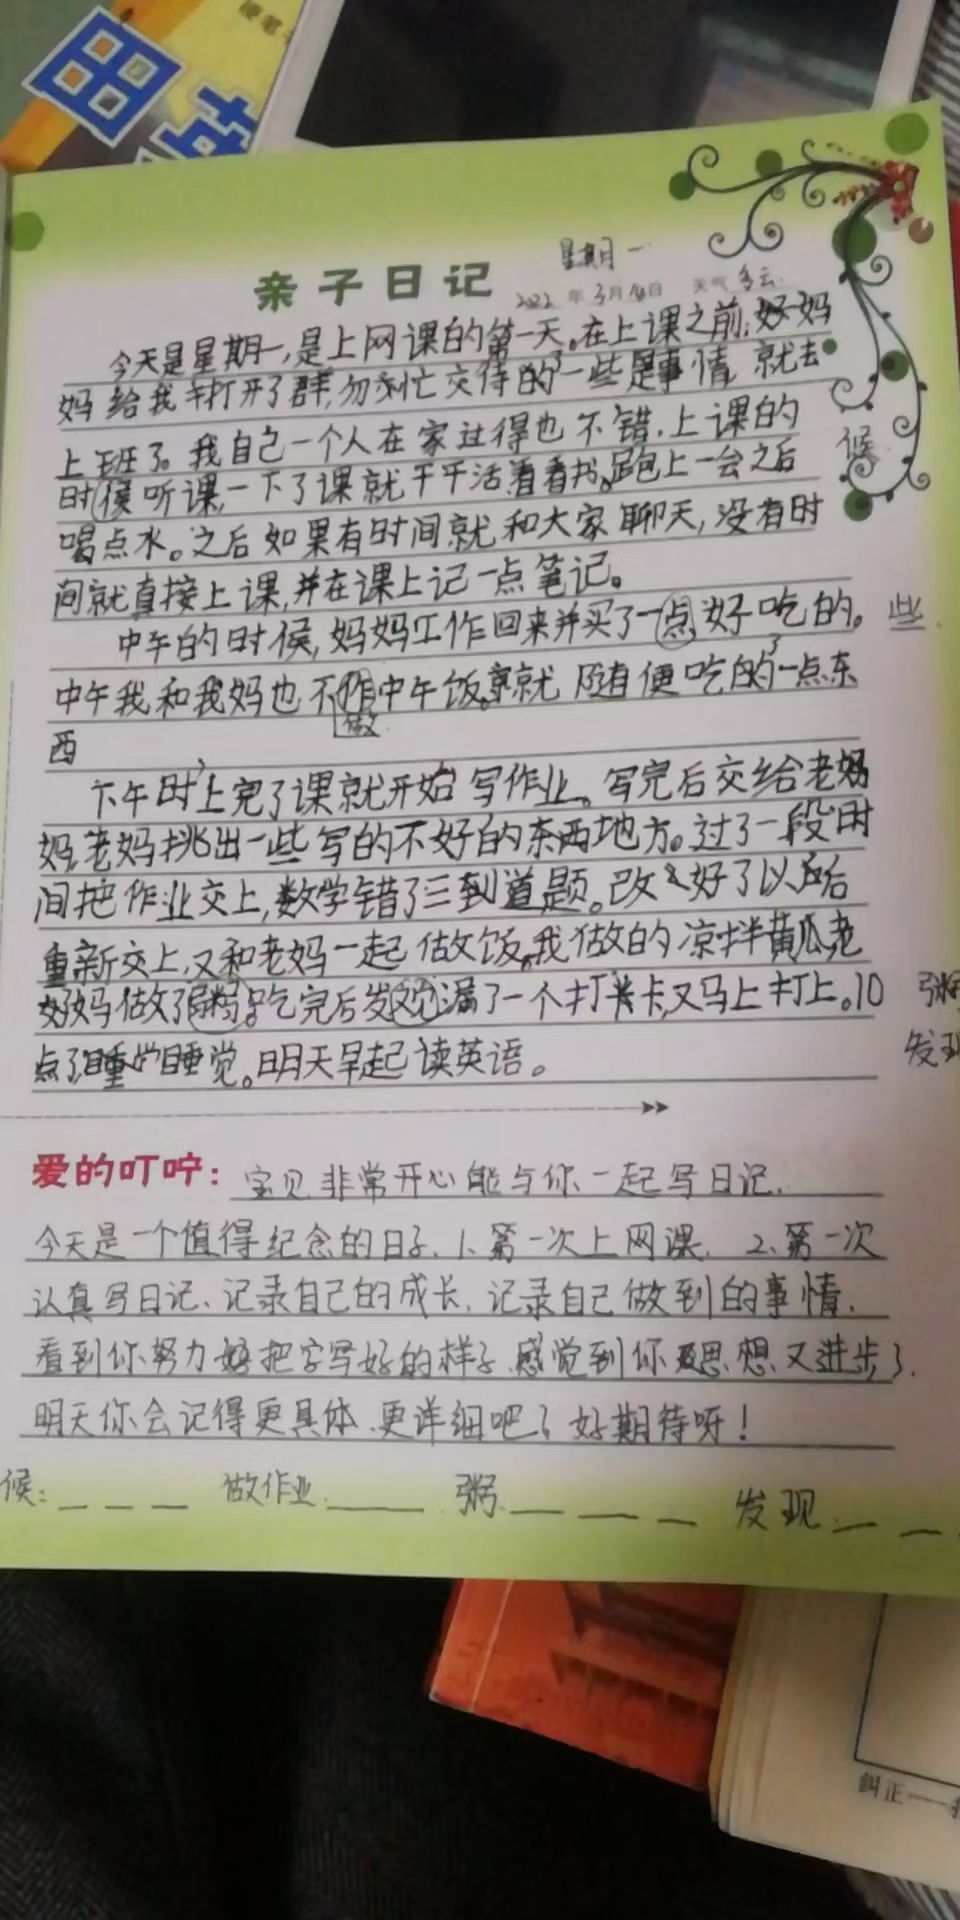 硬笔
田英
星期一
亲子日记
2022年3月14日 天气 多云
今天是星期一,是上网课的第一天。在上课之前,妈
妈给我打开了群,匆匆忙忙交待的一些事情 就去
上班了。我自己一个人在家过得也不错,上课的
候
时候听课,一下了课就干干活看看书。跑上一会之后
喝点水。之后如果有时间就和大家聊天,没有时
间就直接上课,并在课上记一点笔记。
中午的时候,妈妈工作回来并买了一点好吃的。
些
中午我和我妈也不作中午饭。就随便吃的一点东
做
西
下午时上完了课就开始写作业。写完后交给老妈
老妈挑出一些写的不好的地方。过了一段时
间把作业交上,数学错了三道题。改好了以后
重新交上,又和老妈一起做饭,我做的凉拌黄瓜老
妈做了粥。吃完后发现漏了一个打卡,又马上打上。10
粥
发现
点了睡觉。明天早起读英语。
爱的叮咛:宝贝 非常开心能与你一起写日记.
今天是一个值得纪念的日子.1.第一次上网课. 2.第一次
认真写日记、记录自己的成长,记录自己做到的事情.
看到你努力把字写好的样子.感觉到你思想又进步了.
明天你会记得更具体.更详细吧?好期待呀!
候:_ _ _ 做作业.___ 粥._ _ _ _ 发现._ _
纠正——